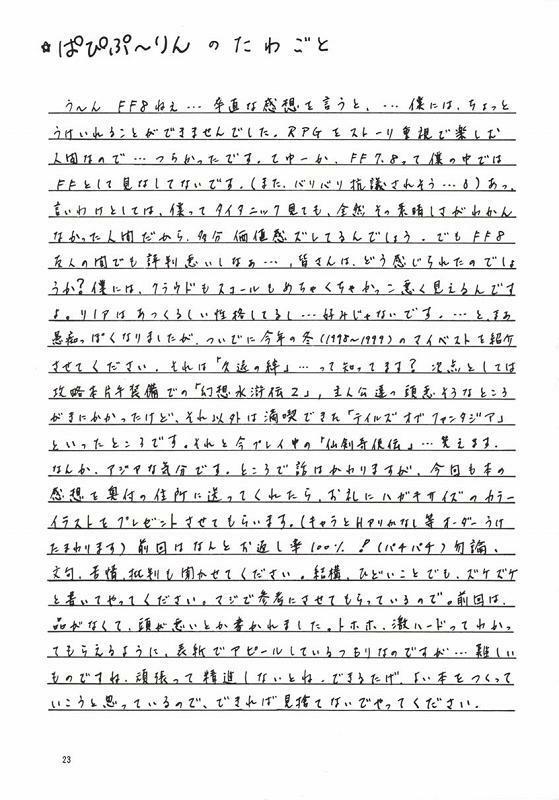 ☆ぱぴぷ〜りんのたわごと
う〜ん FF8ねぇ… 率直な感想を言うと、… 僕には、ちょっと
うけいれることができませんでした。RPGをストーリー重視で楽しむ
人間なので… つらかったです。てゆーか、FF7.8って僕の中では
FFとして見なしてないです。(また、バリバリ抗議されそう…)あっ、
言いわけとしては、僕ってタイタニック見ても、全然その素晴しさがわかん
なかった人間だから、多分価値感ズレてるんでしょう。でもFF8
友人の間でも評判悪いしなぁ…、皆さんは、どう感じられたのでしょ
うか?僕には、クラウドもスコールもめちゃくちゃかっこ悪く見えるんです
よ。リノアはあつくるしい性格してるし…好みじゃないです。…と、まぁ
愚痴っぽくなりましたが、ついでに今年の冬(1998〜1999)のマイベストを紹介
させてください。それは「久遠の絆」…って知ってます? 次点としては
攻略本片手装備での「幻想水滸伝2」、主人公達の頭悪そうなところ
がきにかかったけど、それ以外は満喫できた「テイルズオブファンタジア」
といったところです。それと今プレイ中の「仙剣奇侠伝」…笑えます。
なんか、アジアな気分です。ところで話はかわりますが、今回も本の
感想を奥付の住所に送ってくれたら、お礼にハガキサイズのカラー
イラストをプレゼントさせてもらいます。(キャラとHアリかなし等オーダーうけ
たまわります)前回はなんとお返し率100%!(パチパチ)勿論、
文句、苦情、批判も聞かせてください。結構、ひどいことでも、ズケズケ
と書いてやってください。マジで参考にさせてもらっているので。前回は、
品がなくて、頭が悪いとか書かれました。トホホ、激ハードってわかっ
てもらえるように、表紙でアピールしているつもりなのですが…難しい
ものですね。頑張って精進しないとね。できるだけ、よい本をつくって
いこうと思っているので、できれば見捨てないでやってください。
23